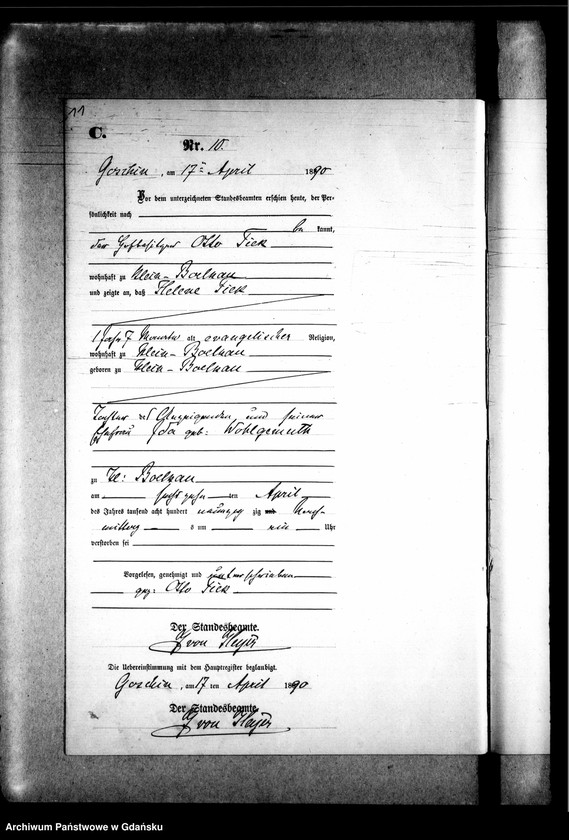 11
C.
Nr. 10.
Goschin, am 17ten April 1890
Vor dem unterzeichneten Standesbeamten erschien heute, der Per-
sönlichkeit nach
be kannt,
der Hofbesitzer Otto Tiek
wohnhaft zu Klein-Boelkau
und zeigte an, daß Helene Tiek
1 Jahr 7 Monate alt evangelischer Religion,
wohnhaft zu Klein-Boelkau
geboren zu Klein-Boelkau
Tochter des Anzeigenden und seiner
Ehefrau Ida geb: Wohlgemuth
zu Kl: Boelkau
am sechszehnten April
des Jahres tausend acht hundert neunzig zig und Nach-
mittag s um ein Uhr
verstorben sei
Vorgelesen, genehmigt und unterschrieben
gez: Otto Tiek
Der Standesbeamte.
von Heyer
Die Uebereinstimmung mit dem Hauptregister beglaubigt.
Goschin, am 17 ten April 1890
Der Standesbeamte.
von Heyer
Archiwum Państwowe w Gdańsku